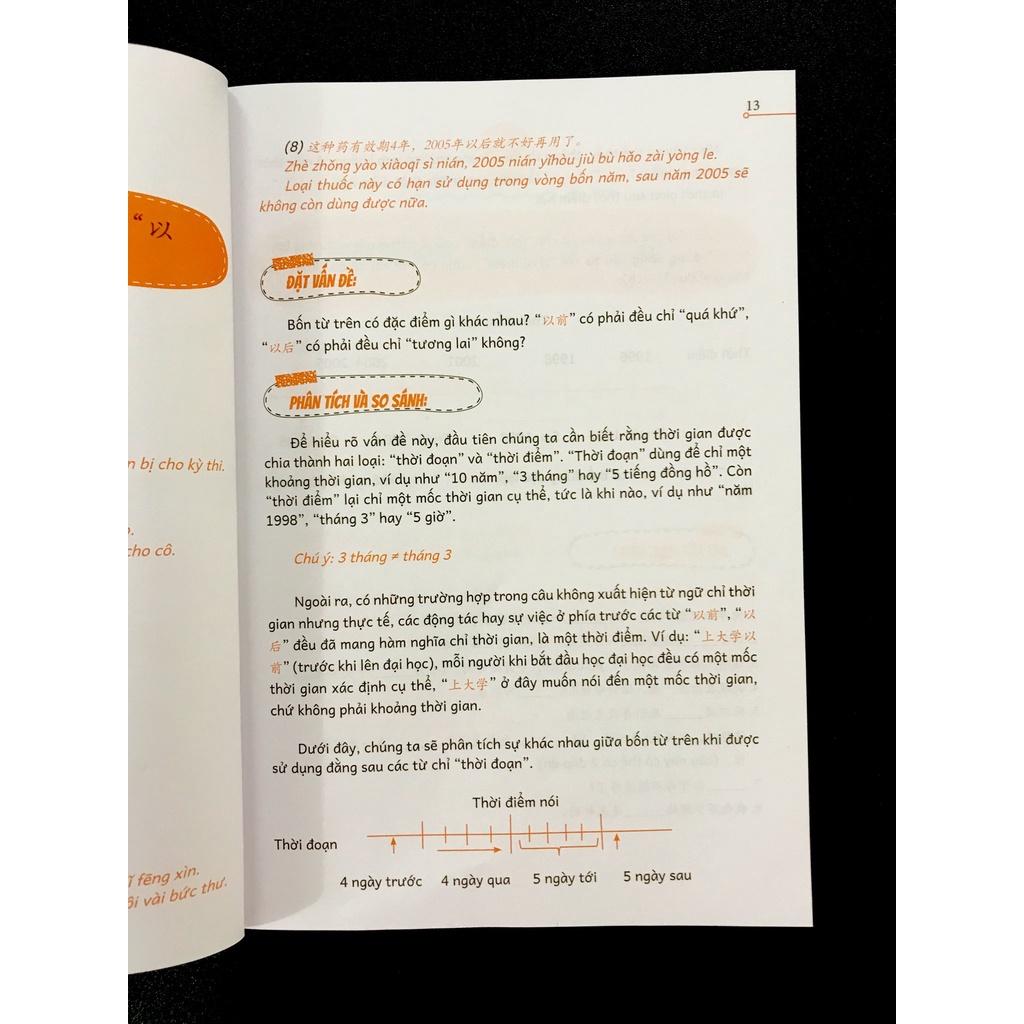 “以
n bị cho kỳ thi.
cho cô.
fēng xìn.
ôi vài bức thư.
13
(8) 这种药有效期4年，2005年以后就不好再用了。
Zhè zhǒng yào xiàoqī sì nián, 2005 nián yǐhòu jiù bù hǎo zài yòng le.
Loại thuốc này có hạn sử dụng trong vòng bốn năm, sau năm 2005 sẽ
không còn dùng được nữa.
ĐẶT VẤN ĐỀ:
Bốn từ trên có đặc điểm gì khác nhau? “以前” có phải đều chỉ “quá khứ”,
“以后” có phải đều chỉ “tương lai” không?
PHÂN TÍCH VÀ SO SÁNH:
Để hiểu rõ vấn đề này, đầu tiên chúng ta cần biết rằng thời gian được
chia thành hai loại: “thời đoạn” và “thời điểm”. “Thời đoạn” dùng để chỉ một
khoảng thời gian, ví dụ như “10 năm”, “3 tháng” hay “5 tiếng đồng hồ”. Còn
“thời điểm” lại chỉ một mốc thời gian cụ thể, tức là khi nào, ví dụ như “năm
1998”, “tháng 3” hay “5 giờ”.
Chú ý: 3 tháng ≠ tháng 3
Ngoài ra, có những trường hợp trong câu không xuất hiện từ ngữ chỉ thời
gian nhưng thực tế, các động tác hay sự việc ở phía trước các từ “以前”, “以
后” đều đã mang hàm nghĩa chỉ thời gian, là một thời điểm. Ví dụ: “上大学以
前” (trước khi lên đại học), mỗi người khi bắt đầu học đại học đều có một mốc
thời gian xác định cụ thể, “上大学” ở đây muốn nói đến một mốc thời gian,
chứ không phải khoảng thời gian.
Dưới đây, chúng ta sẽ phân tích sự khác nhau giữa bốn từ trên khi được
sử dụng đằng sau các từ chỉ “thời đoạn”.
Thời điểm nói
Thời đoạn
4 ngày trước 4 ngày qua 5 ngày tới 5 ngày sau